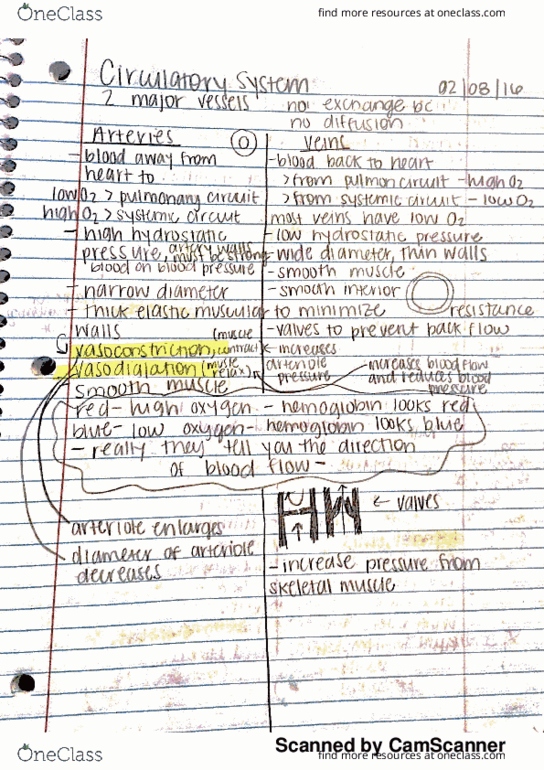 OneClass
find more resources at oneclass.com
Circulatory System 02/08/16
2 major vessels
no exchange bc
no diffusion
Arteries
- blood away from
heart to
low O2 > pulmonary circuit
high O2 > systemic circuit
- high hydrostatic
pressure, artery walls must be strong
blood on blood pressure
- narrow diameter
- thick elastic muscular
walls
vasoconstriction (muscle contract)
vasodialation (muscle relax)
smooth muscle
Veins
- blood back to heart
> from pulmon circuit - high O2
> from systemic circuit - low O2
most veins have low O2
- low hydrostatic pressure
- wide diameter, thin walls
- smooth muscle
- smooth interior
to minimize resistance
- valves to prevent back flow
← increases
arteriole
pressure
increases blood flow
and reduces blood
pressure
red - high oxygen - hemoglobin looks red
blue - low oxygen - hemoglobin looks blue
- really they tell you the direction
of blood flow -
← valves
arteriole enlarges
diameter of arteriole
decreases
- increase pressure from
skeletal muscle
Scanned by CamScanner
OneClass
find more resources at oneclass.com